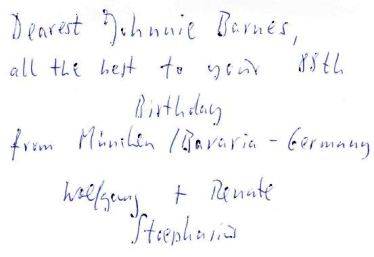 Dearest Johnnie Barnes,
all the best to your 88th
Birthday
from München / Bavaria - Germany
Wolfgang + Renate